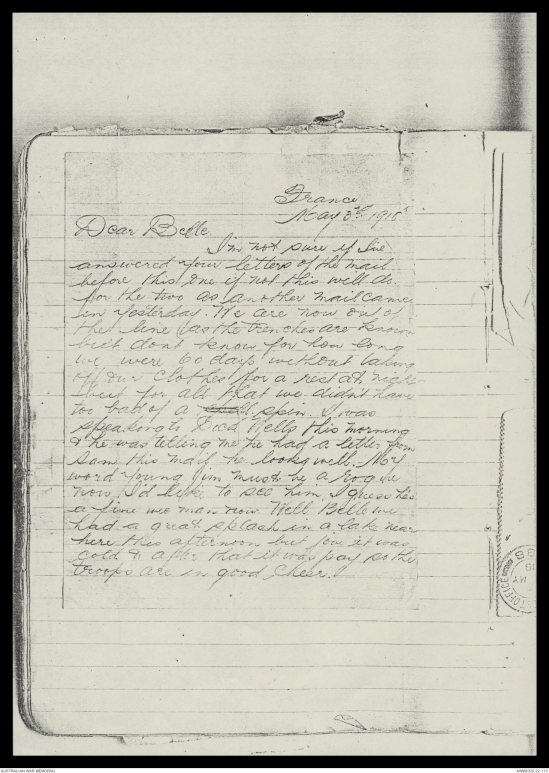 France
May 3rd 1918
Dear Belle
I'm not sure if I've
answered your letters of the mail
before this one if not this will do
for the two as another mail came
in yesterday. We are now out of
the line (as the trenches are known
but dont know for how long
we were 60 days without taking
off our clothes for a rest at night
but for all that we didn't have
too bad of a spin. I was
speaking to Wells this morning
& he was telling me he had a letter from
Sam this mail he looks well. My
word young Jim must be a rogue
now I'd like to see him, I guess he's
a fine wee man now. Well Belle we
had a great splash in a lake near
here this afternoon but it was
cold & after that it was pay so the
troops are in good cheer.
OFFICE
MY
AUSTRALIAN WAR MEMORIAL